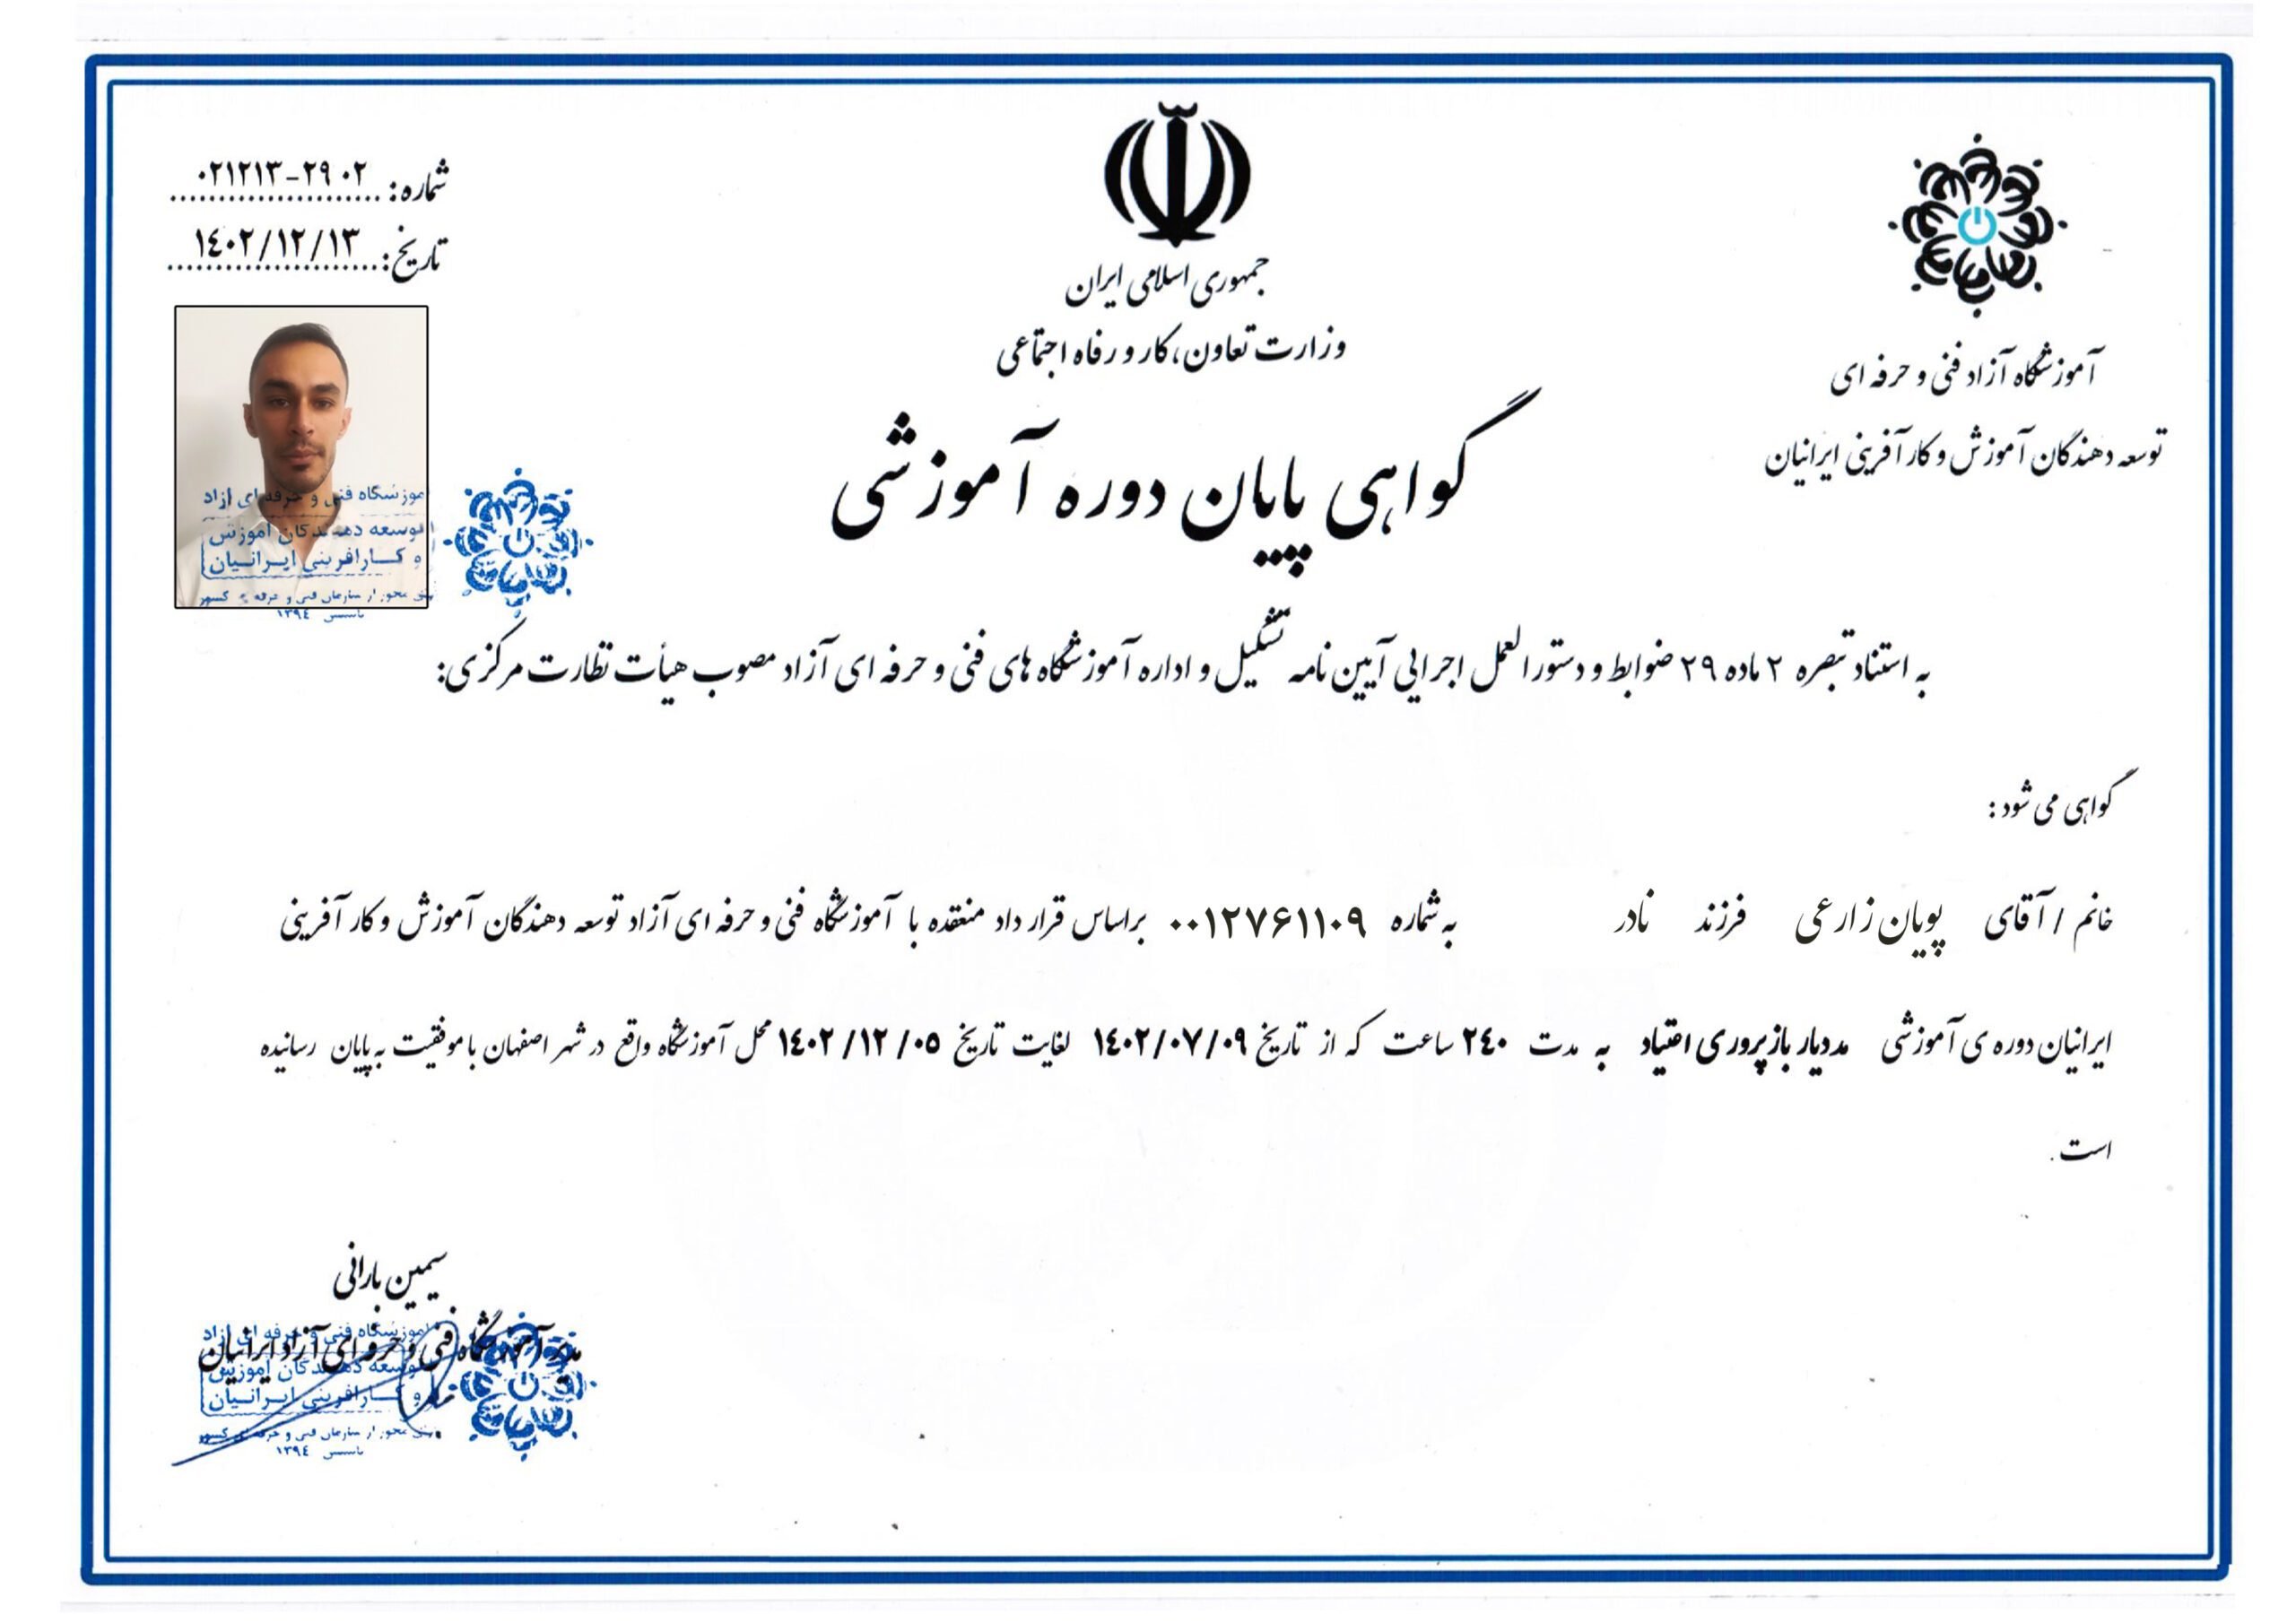 شماره: ۰۲۱۲۱۳-۲۹۰۲
تاریخ: ۱٤۰۲/۱۲/۱۳
جمهوری اسلامی ایران
وزارت تعاون، کار و رفاه اجتماعی
آموزشگاه آزاد فنی و حرفه ای
توسعه دهندگان آموزش و کارآفرینی ایرانیان
گواهی پایان دوره آموزشی
آموزشگاه فنی و حرفه ای آزاد
توسعه دهندگان آموزش
و کارآفرینی ایرانیان
سازمان فنی و حرفه ای کشور
تاسیس ۱۳۹٤
به استناد تبصره ۲ ماده ۲۹ ضوابط و دستورالعمل اجرایی آیین نامه تشکیل و اداره آموزشگاه های فنی و حرفه ای آزاد مصوب هیأت نظارت مرکزی:
گواهی می شود:
خانم / آقای پویان زارعی فرزند نادر به شماره ۰۰۱۲۷۶۱۱۰۹ براساس قرار داد منعقده با آموزشگاه فنی و حرفه ای آزاد توسعه دهندگان آموزش و کار آفرینی
ایرانیان دوره ی آموزشی مددیار بازپروری اعتیاد به مدت ۲٤۰ ساعت که از تاریخ ۱٤۰۲/۰۷/۰۹ لغایت تاریخ ۱٤۰۲/۱۲/۰۵ محل آموزشگاه واقع در شهر اصفهان با موفقیت به پایان رسانیده
است.
سیمین بارانی
مدیر آموزشگاه فنی و حرفه ای آزاد ایرانیان
آموزشگاه فنی و حرفه ای آزاد
توسعه دهندگان آموزش
و کارآفرینی ایرانیان
سازمان فنی و حرفه ای کشور
تاسیس ۱۳۹٤